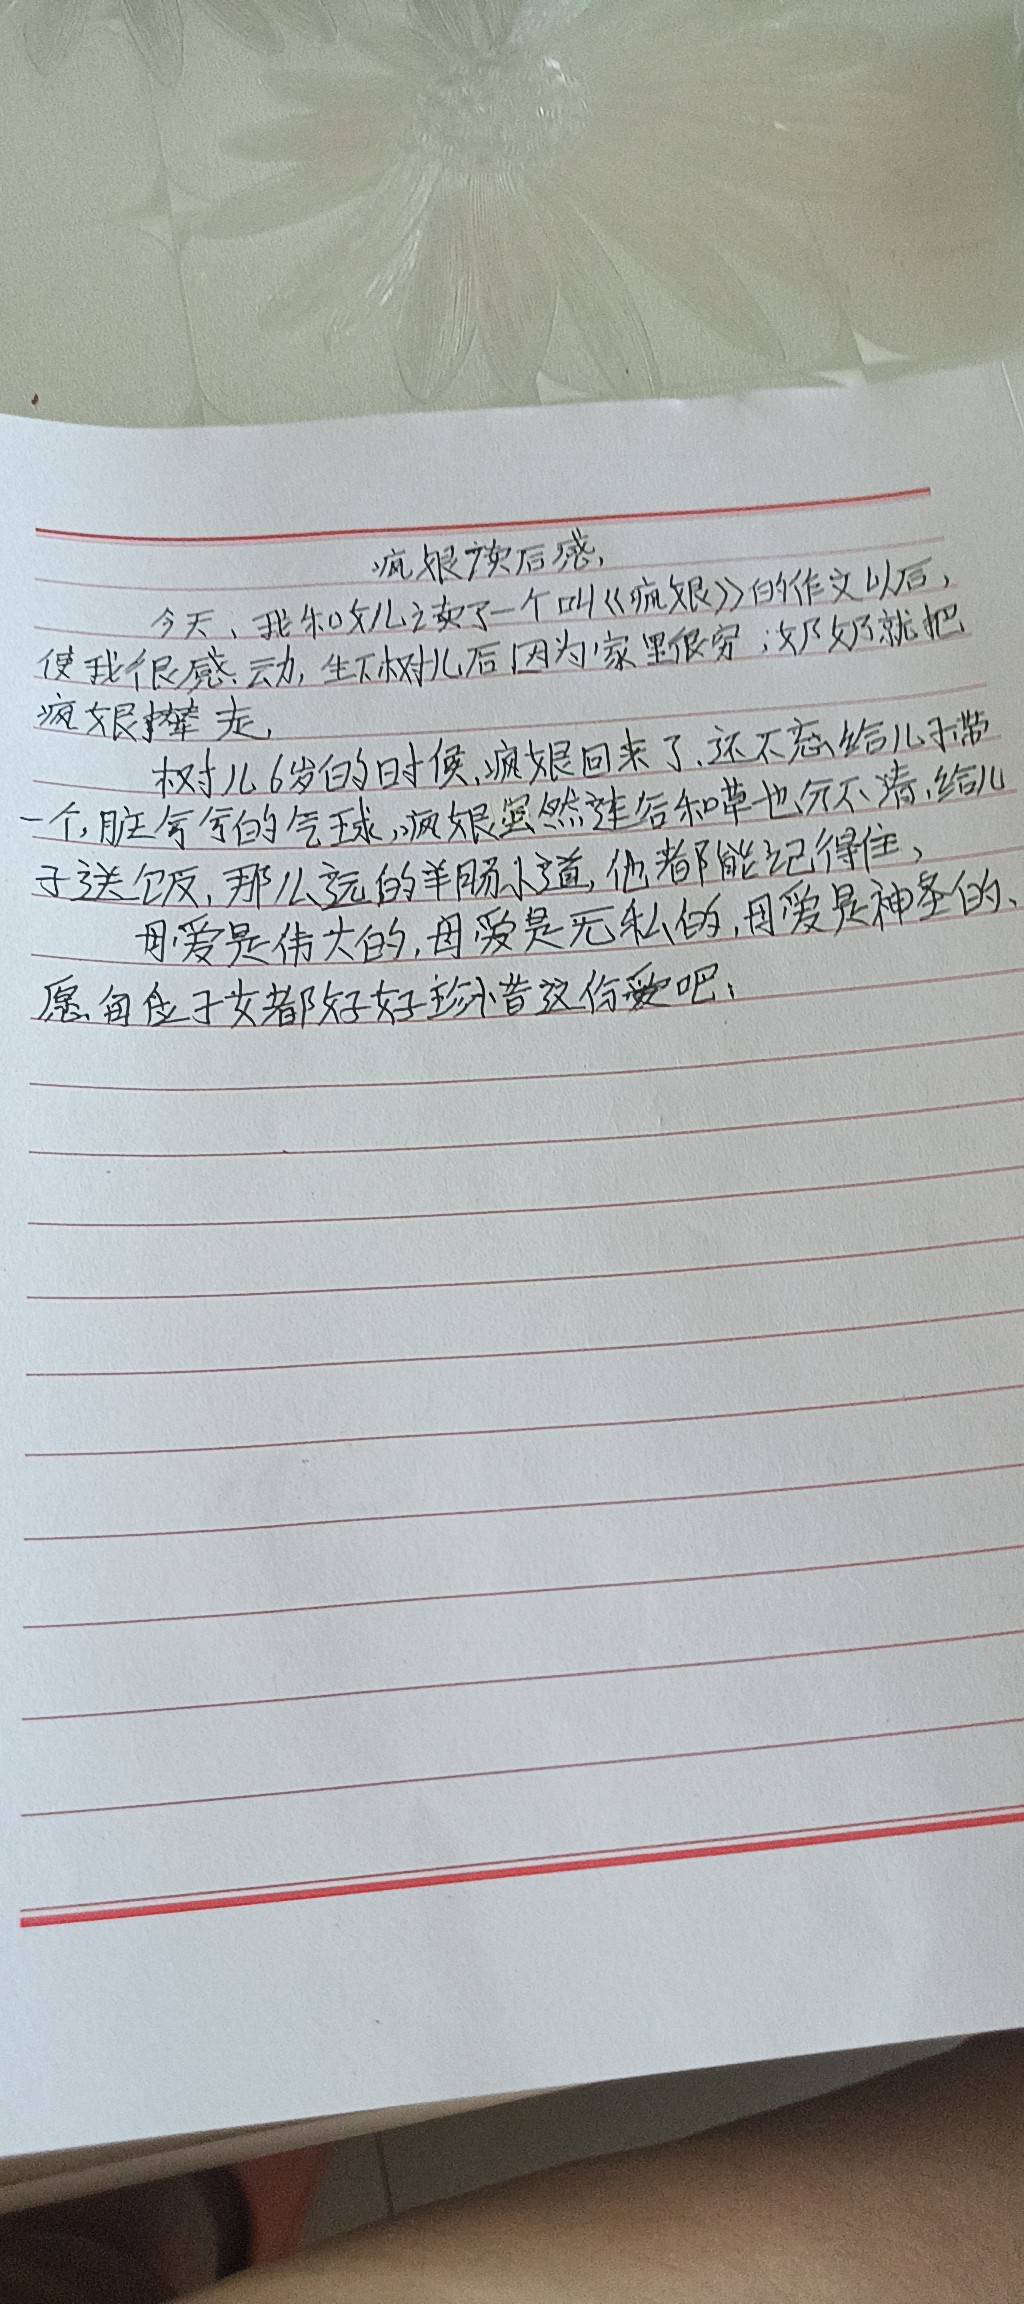 疯娘读后感,
今天、我和女儿读了一个叫《疯娘》的作文以后,
使我很感动,生下树儿后因为家里很穷,奶奶就把
疯娘撵走,
树儿6岁的时候、疯娘回来了、还不忘给儿子带
一个,脏兮兮的气球,疯娘虽然连谷和草也分不清、给儿
子送饭,那么远的羊肠小道,他都能记得住,
母爱是伟大的,母爱是无私的,母爱是神圣的、
愿每位子女都好好珍惜这份爱吧,